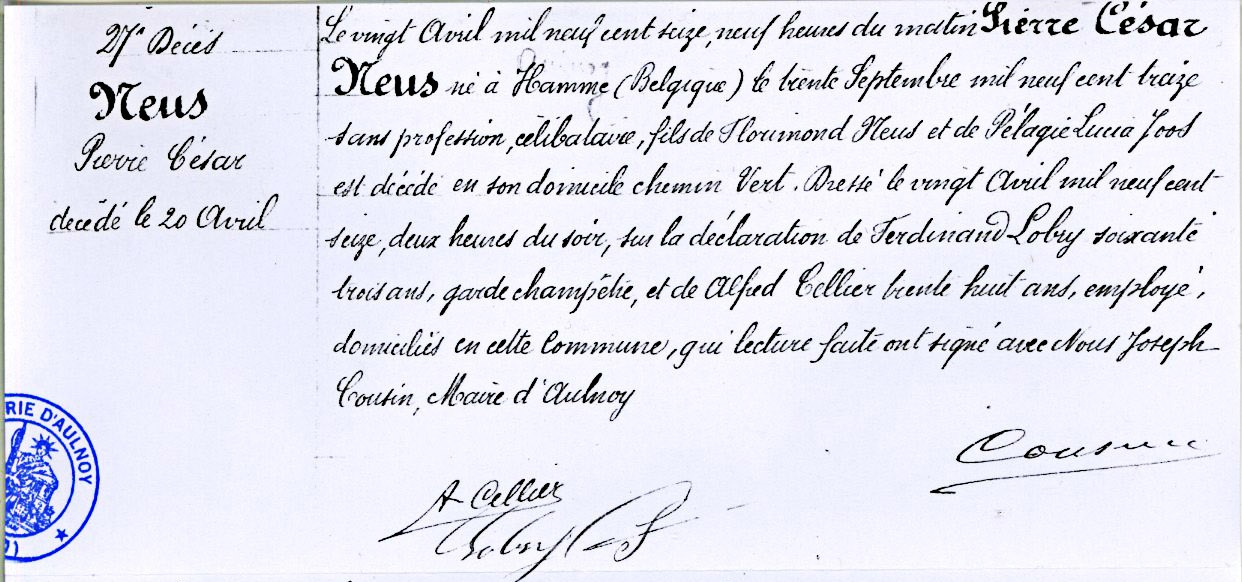 27e Décès
Neus
Pierre César
decédé le 20 Avril
Le vingt Avril mil neuf cent seize, neuf heures du matin Pierre César
Neus né à Hamme (Belgique) le trente Septembre mil neuf cent treize
sans profession, célibataire, fils de Florimond Neus et de Pélagie Lucia Joos
est décédé en son domicile chemin Vert. Dressé le vingt Avril mil neuf cent
seize, deux heures du soir, sur la déclaration de Ferdinand Lobry soixante
trois ans, garde champêtre, et de Alfred Cellier trente huit ans, employé,
domiciliés en cette Commune, qui lecture faite ont signé avec Nous Joseph
Cousin, Maire d'Aulnoy
Cousin
A Cellier
Lobry
RIE D'AULNOY